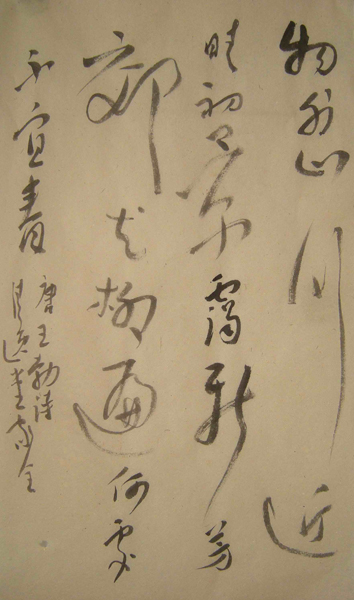 物外山川近
晴初景靄新芳
郊花柳遍何處
不宜春
唐王勃詩